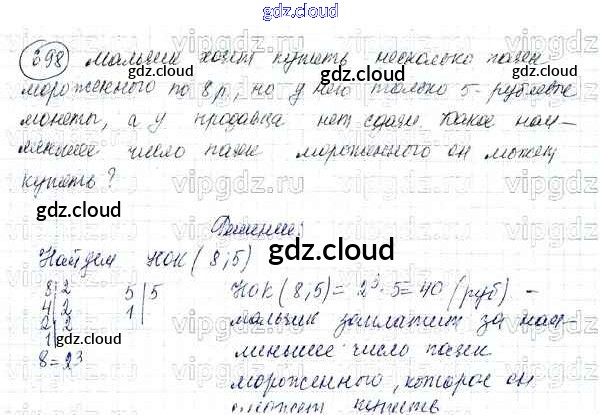 gdz.cloud
698 мальчик хочет купить несколько пачек
gdz.cloud gdz.cloud
мороженного по 8 р, но у него только 5-рублевые
монеты, а у продавца нет сдачи. Какое наи-
меньшее число пачек мороженного он может
купить?
vipgdz.ru vipgdz.ru vipgdz.ru
gdz.cloud gdz.cloud
Решение:
gdz.cloud
Найдем НОК (8,5)
8|2 5|5 НОК (8,5) = 2³·5=40 (руб) -
4|2 1| мальчик заплатит за наи-
2|2 меньшее число пачек
1|
gdz.cloud gdz.cloud
8=2³ мороженного, которое он
может купить